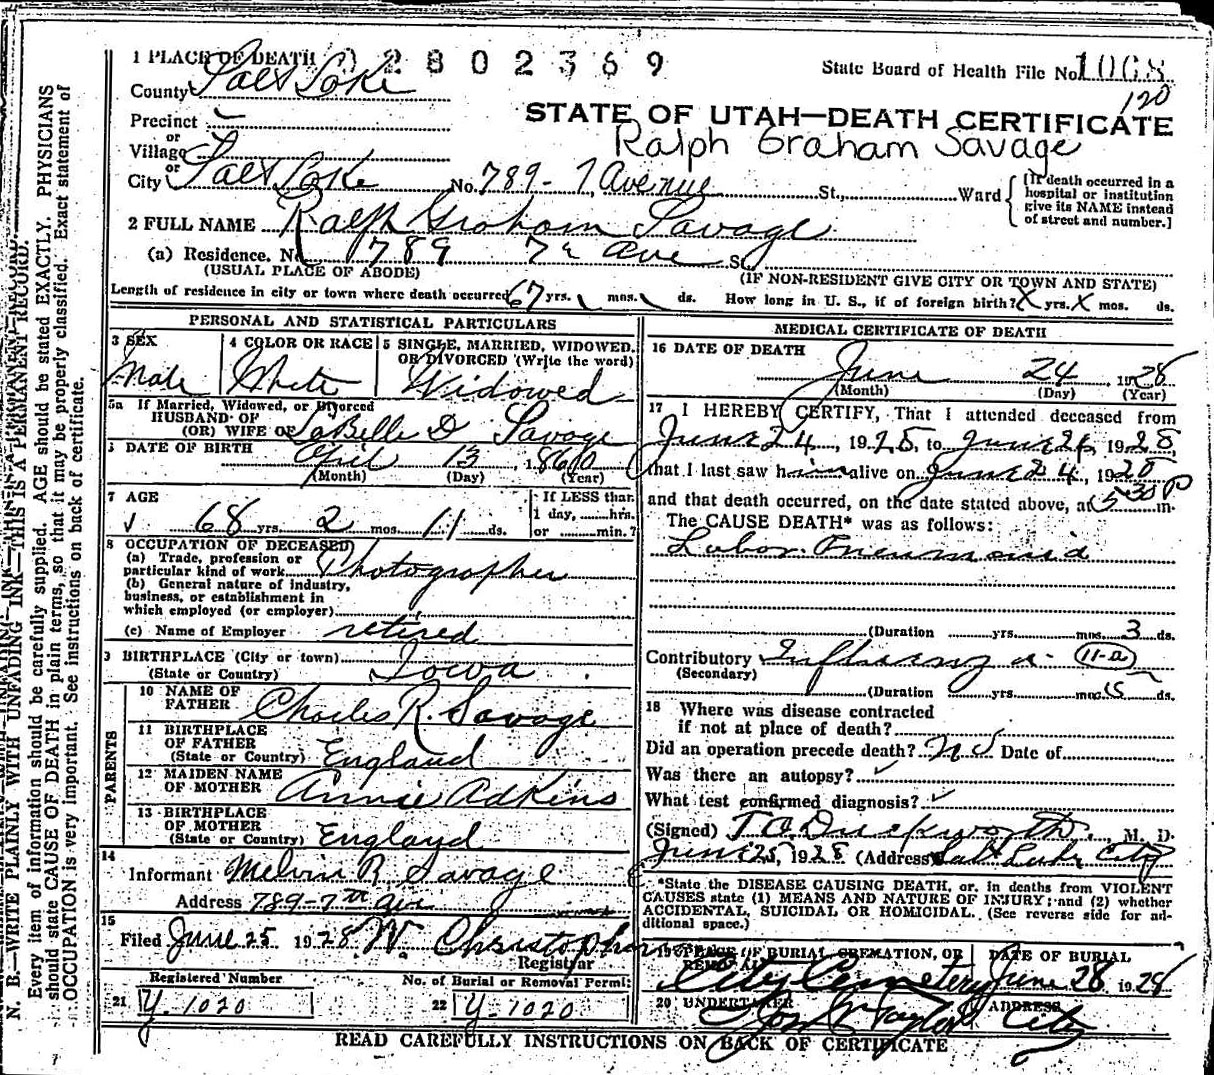 1 PLACE OF DEATH 02802369
State Board of Health File No. 1068
120
County Salt Lake
STATE OF UTAH—DEATH CERTIFICATE
Precinct
Ralph Graham Savage
or
Village
or
City Salt Lake No. 789 - 7 Avenue St., Ward
[If death occurred in a hospital or institution give its NAME instead of street and number.]
2 FULL NAME Ralph Graham Savage
(a) Residence. No. 789 7th Ave St.
(USUAL PLACE OF ABODE) (IF NON-RESIDENT GIVE CITY OR TOWN AND STATE)
Length of residence in city or town where death occurred 67 yrs. mos. ds. How long in U. S., if of foreign birth? X yrs. X mos. ds.
PERSONAL AND STATISTICAL PARTICULARS
3 SEX Male
4 COLOR OR RACE White
5 SINGLE, MARRIED, WIDOWED, OR DIVORCED (Write the word) Widowed
5a If Married, Widowed, or Divorced
HUSBAND OF
(OR) WIFE OF LaBelle D Savage
DATE OF BIRTH April 13, 1860
(Month) (Day) (Year)
7 AGE 68 yrs. 2 mos. 11 ds.
If LESS than 1 day, hrs. or min.?
8 OCCUPATION OF DECEASED
(a) Trade, profession or
particular kind of work Photographer
(b) General nature of industry,
business, or establishment in
which employed (or employer)
(c) Name of Employer retired
9 BIRTHPLACE (City or town)
(State or Country) Iowa
PARENTS
10 NAME OF
FATHER Charles R. Savage
11 BIRTHPLACE
OF FATHER
(State or Country) England
12 MAIDEN NAME
OF MOTHER Annie Adkins
13 BIRTHPLACE
OF MOTHER
(State or Country) England
14
Informant Melvin R. Savage
Address 789-7th ave
15
Filed June 25 1928 W. Christopherson
Registrar
Registered Number
21 Y-1020
No. of Burial or Removal Permit
22 Y-1020
MEDICAL CERTIFICATE OF DEATH
16 DATE OF DEATH
June 24, 1928
(Month) (Day) (Year)
17 I HEREBY CERTIFY, That I attended deceased from
June 24, 1928, to June 24, 1928,
that I last saw him alive on June 24, 1928
and that death occurred, on the date stated above, at 5 30 P m.
The CAUSE DEATH* was as follows:
Lobar Pneumonia
(Duration yrs. mos. 3 ds.
Contributory Influenza - 11-a
(Secondary)
(Duration yrs. mos. 15 ds.
18 Where was disease contracted
if not at place of death?
Did an operation precede death? No Date of
Was there an autopsy? ✓
What test confirmed diagnosis? ✓
(Signed) T. A. Duckworth, M. D.
June 25, 1928 (Address) Salt Lake City
*State the DISEASE CAUSING DEATH, or, in deaths from VIOLENT
CAUSES state (1) MEANS AND NATURE OF INJURY; and (2) whether
ACCIDENTAL, SUICIDAL OR HOMICIDAL. (See reverse side for ad-
ditional space.)
19 PLACE OF BURIAL, CREMATION, OR
REMOVAL City Cemetery
DATE OF BURIAL
June 28 1928
20 UNDERTAKER Taylor
ADDRESS City
READ CAREFULLY INSTRUCTIONS ON BACK OF CERTIFICATE
N. B.—WRITE PLAINLY WITH UNFADING INK—THIS IS A PERMANENT RECORD.
Every item of information should be carefully supplied. AGE should be stated EXACTLY. PHYSICIANS
should state CAUSE OF DEATH in plain terms, so that it may be properly classified. Exact statement of
OCCUPATION is very important. See instructions on back of certificate.